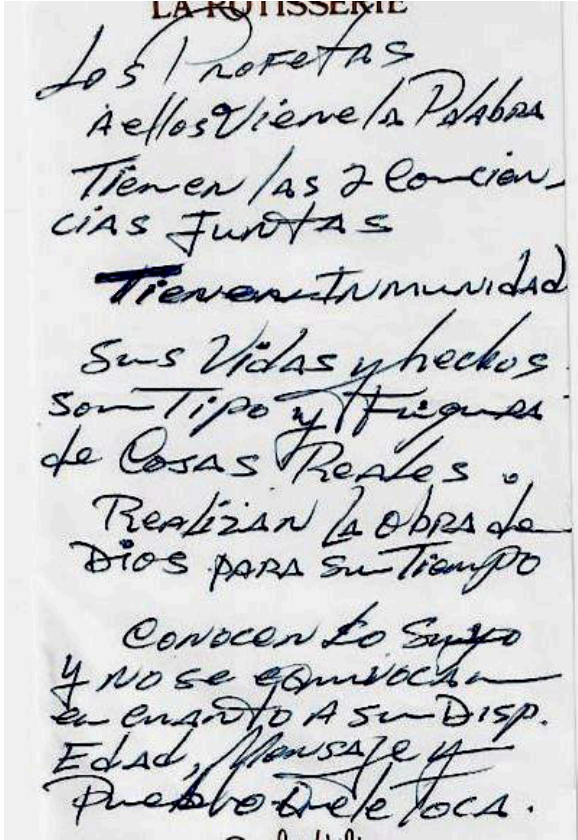 LA ROTISSERIE
Los Profetas
A ellos Viene la Palabra
Tienen las 2 Concien-
cias Juntas
Tienen Inmunidad
Sus Vidas y hechos
son Tipo y Figura
de Cosas Reales.
Realizan la obra de
Dios para su Tiempo
Conocen Lo Suyo
y no se equivocan
en cuanto a su Disp.
Edad, Mensaje y
Pueblo Que le Toca.